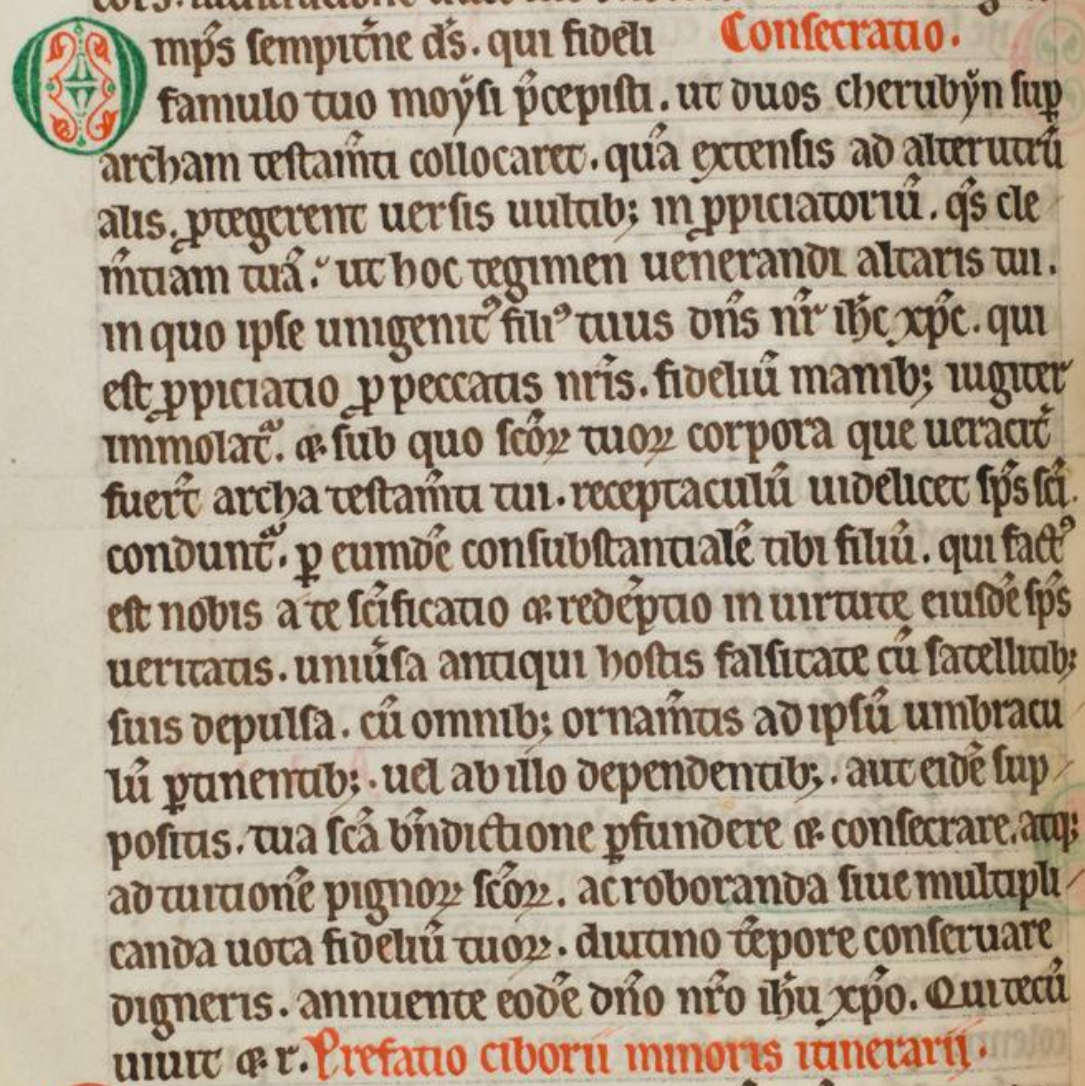 Omp̄s sempit̄ne d̄s. qui fideli Consecratio.
famulo tuo moẏsi p̄cepisti. ut duos cherubẏn sup̱
archam testam̄ti collocaret. quā extensis ad alterutrū
alis. ꝓtegerent uersis uultib; in ꝓpiciatoriū. q̄s cle
m̄tiam tuā. ut hoc tegimen uenerandi altaris tui.
in quo ipse unigenitꝰ filiꝰ tuus dn̄s nr̄ ih̄c xp̄c. qui
est ꝓpiciatio ꝓ peccatis nr̄is. fideliū manib; iugiter
immolat᷑. ⁊ sub quo sc̄oꝝ tuoꝝ corpora que ueracit᷑
fuer̄t archa testam̄ti tui. receptaculū uidelicet sp̄s sc̄i.
condunt᷑. ꝑ eumdē consubstantialē tibi filiū. qui factꝰ
est nobis a te sc̄ificatio ⁊ redēptio in uirtute eiusdē sp̄s
ueritatis. uniu̇sa antiqui hostis falsitate cū satellitib;
suis depulsa. cū omnib; ornam̄tis ad ipsū umbracu
lū ꝑtinentib;. uel ab illo dependentib;. aut eidē sup
positis. tua sc̄a bn̄dictione ꝑfundere ⁊ consecrare. atq;
ad tuitionē pignoꝝ sc̄oꝝ. ac roboranda siue multipli
canda uota fideliū tuoꝝ. diutino tēpore conseruare
digneris. annuente eodē dn̄o nr̄o ih̄u xp̄o. Qui tecū
uiuit ⁊ r. Prefatio ciborii minoris itinerarij.